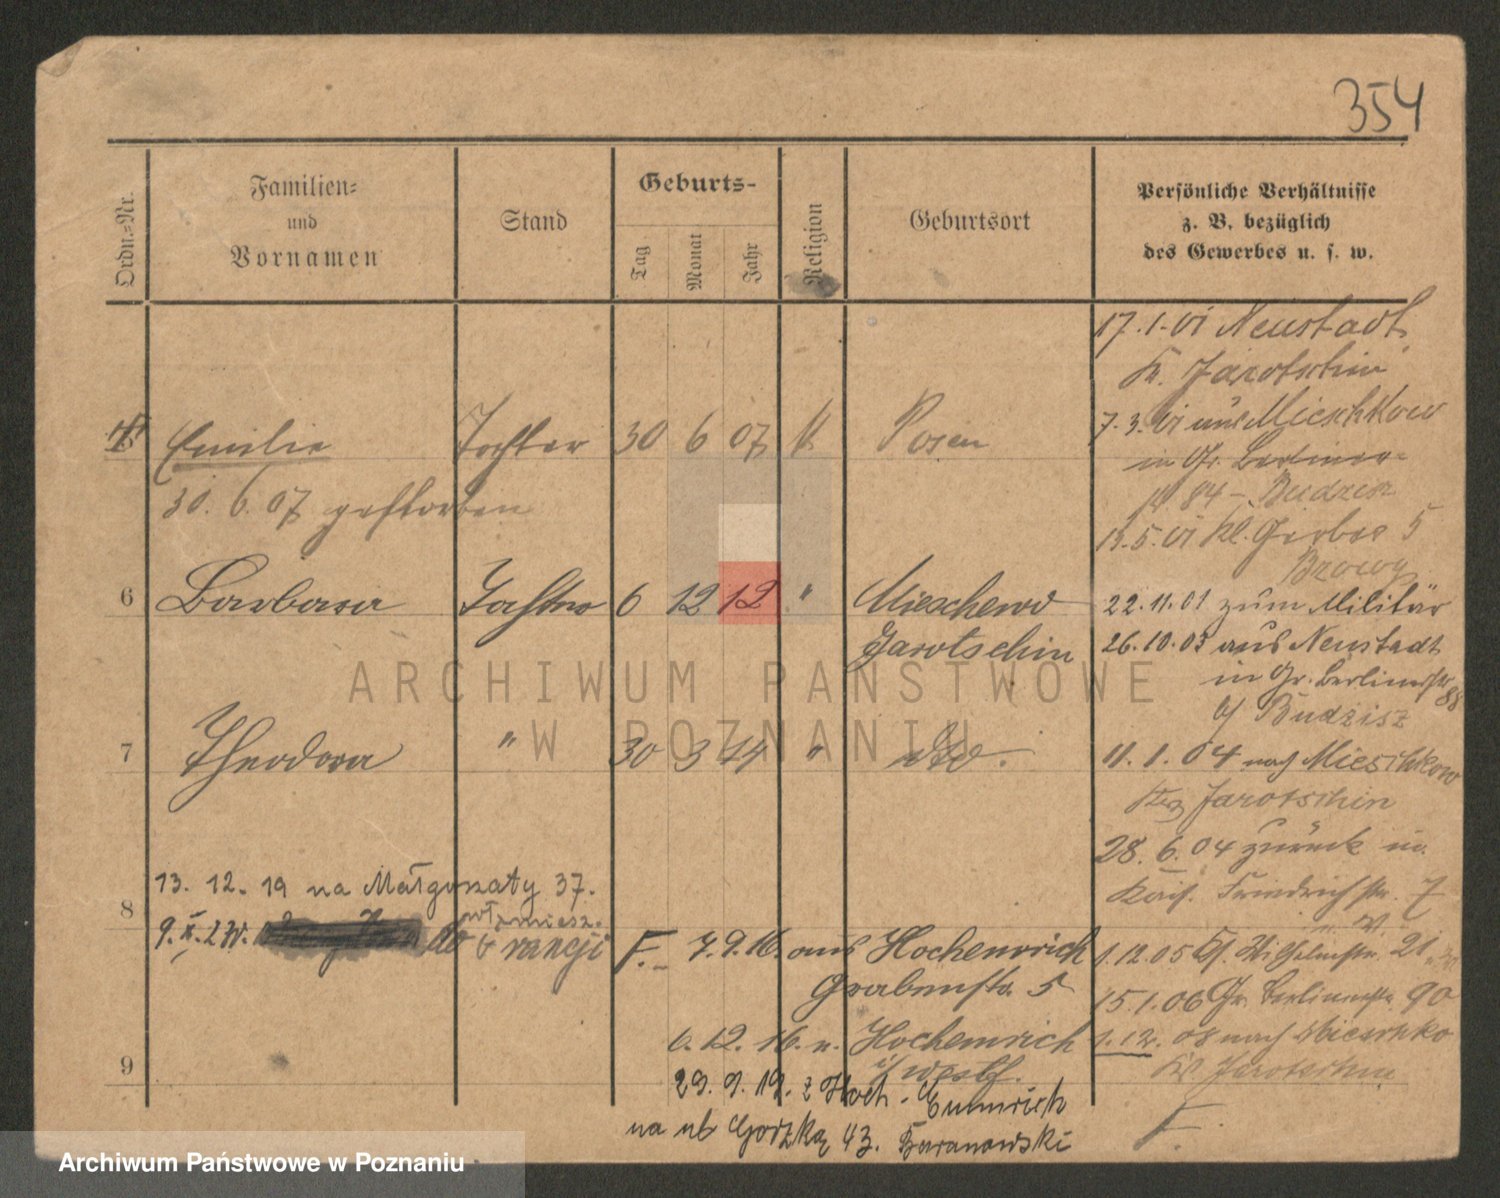 354
Ordn.-Nr.
Familien-
und
Vornamen
Stand
Geburts-
Tag
Monat
Jahr
Religion
Geburtsort
Persönliche Verhältnisse
z. B. bezüglich
des Gewerbes u. s. w.
17.1.01 Neustadt
Kr. Jarotschin
Emilie Tochter 30 6 07 K. Posen
7.3.01 aus Mieschkow
in Gr. Berliner-
30.6.07 gestorben
84 - Budzisz
13.5.01 Kl. Gerber 5
6 Barbara Tochter 6 12 12 " Mieschkow
Jarotschin
22.11.01 zum Militär
26.10.03 aus Neustadt
in Gr. Berlinerstr 88
b/ Budzisz
7 Theodora " 30 3 14 " dto.
11.1.04 nach Mieschkow
Krs Jarotschin
28.6.04 zurück in
Kais. Friedrichstr. 7
8
13. 12. 19 na Małgorzaty 37.
9.X.23r. do Francji
F. 7.9.16. aus Hochemrich
Grabenstr. 5
1.12.05 Gr. 21
15.1.06 Gr. Berlinerstr 90
6.12.16. n. Hochemrich
i/ Westf.
1.12.08 nach Mieschko
Kr. Jarotschin
9
29.9.19. z Hoch-Emmrich
na ul Gorzką 43. Baranowski
F.
ARCHIWUM PAŃSTWOWE
W POZNANIU
Archiwum Państwowe w Poznaniu